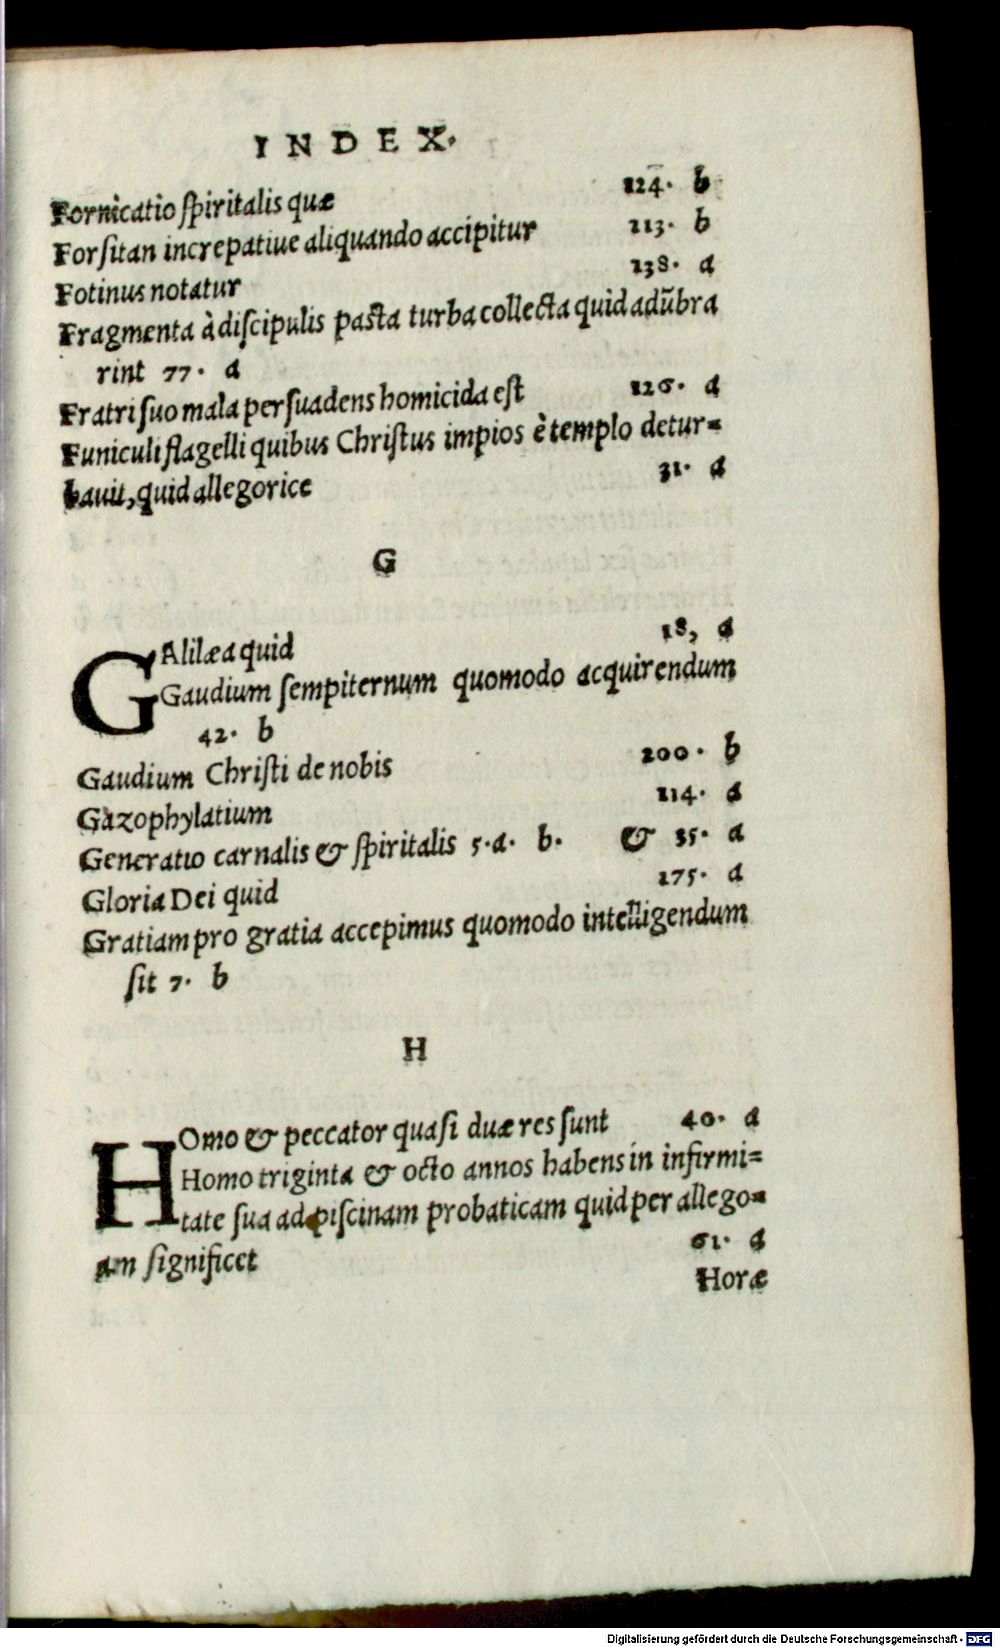 INDEX.
Fornicatio spiritalis quæ 124. b
Forsitan increpatiue aliquando accipitur 113. b
Fotinus notatur 138. a
Fragmenta à discipulis pasta turba collecta quid adūbra
rint 77. a
Fratri suo mala persuadens homicida est 126. a
Funiculi flagelli quibus Christus impios è templo detur-
bauit, quid allegorice 31. a
G
GAlilæa quid 18, a
Gaudium sempiternum quomodo acquirendum
42. b
Gaudium Christi de nobis 200. b
Gazophylatium 114. a
Generatio carnalis & spiritalis 5. a. b. & 35. a
Gloria Dei quid 175. a
Gratiam pro gratia accepimus quomodo intelligendum
sit 7. b
H
HOmo & peccator quasi duæ res sunt 40. a
Homo triginta & octo annos habens in infirmi-
tate sua ad piscinam probaticam quid per allego-
am significet 61. a
Horæ
Digitalisierung gefördert durch die Deutsche Forschungsgemeinschaft - DFG